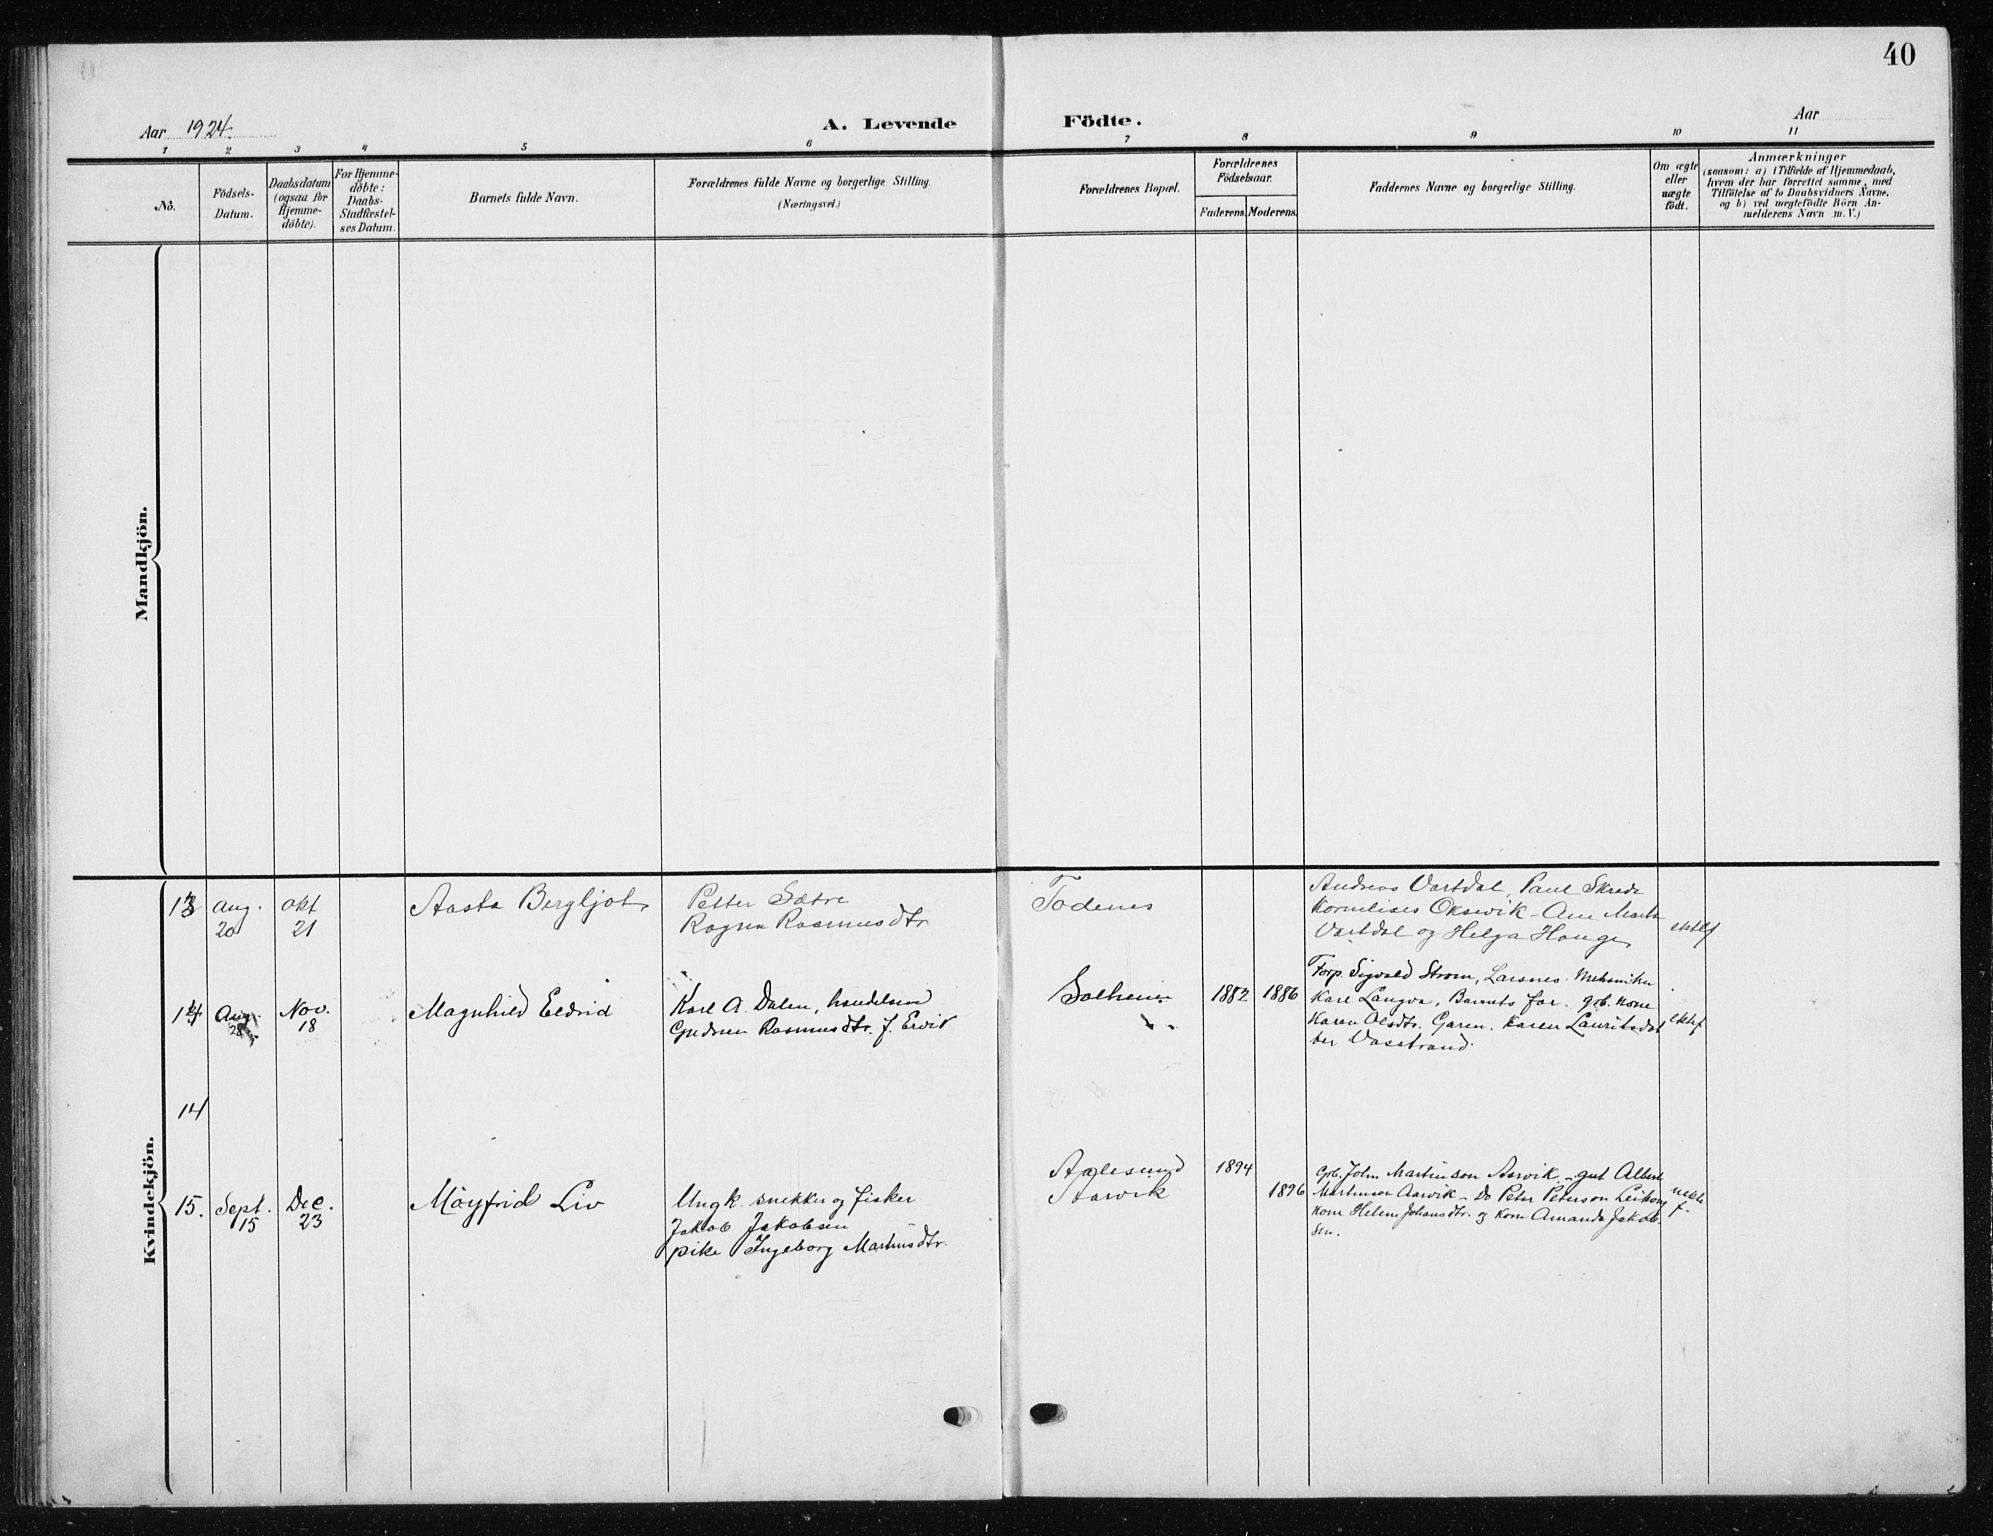 40
Aar 1924.
A. Levende Födte.
Aar
1 2 3 4 5 6 7 8 9 10 11
No.
Födsels-
Datum.
Daabsdatum
(ogsaa for
Hjemme-
döbte).
For Hjemme-
döbte:
Daabs-
Stadfæstel-
ses Datum.
Barnets fulde Navn.
Forældrenes fulde Navne og borgerlige Stilling.
(Næringsvei.)
Forældrenes Bopæl.
Forældrenes
Födselsaar.
Faderens.
Moderens.
Faddernes Navne og borgerlige Stilling.
Om ægte
eller
uægte
födt.
Anmærkninger
(saasom: a) i Tilfælde af Hjemmedaab,
hvem der har forrettet samme, med
Tilföielse af to Daabsvidners Navne.
og b) ved uægtefödte Börn An-
melderens Navn m. V.)
Mandkjön.
Kvindekjön.
13
Aug.
20
Okt
21
Aasta Bergljot
Petter Sætre
Ragna Rasmusdtr
Todenes
Andreas Vartdal, Paul Skrede
Kornelises Oksvik - Ane Marta
Vartdal og Helga Hauge
ektef
14
Aug.
28
Nov.
18
Magnhild Eldrid
Karl A. Dalen, handelsm
Gudrun Rasmusdtr. f. Ervik
Solheim
1882
1886
Forp. Sigvald Strøm, Larsnes. Mekaniker
Karl Langva, Barnets far. gbr. kone
Karen Olsdtr. Garen. Karen Lauritsdat
ter Vasstrand.
ektef
14
15.
Sept.
15
Dec.
23
Möyfrid Liv
Ungk. snekker og fisker
Jakob Jakobsen
pike Ingeborg Martinsdtr.
Aalesund
Aarvik
1894
1896
Gbr. John Martinson Aarvik - gut Albert
Martinson Aarvik - Do Peter Peterson Leikong
kone Helene Johansdtr. og kone Amanda Jakob-
sen.
uekte
f.